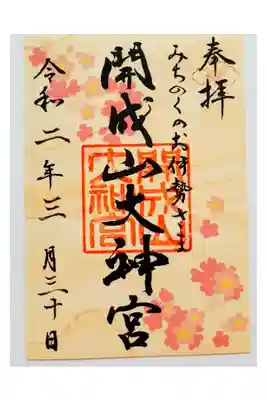 奉拝
みちのくのお伊勢さま
開成山大神宮
令和二年三月三十日
開成山大神宮